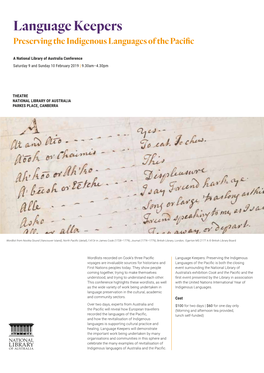 Language Keepers
Preserving the Indigenous Languages of the Pacific
A National Library of Australia Conference
Saturday 9 and Sunday 10 February 2019 | 9.30am–4.30pm
THEATRE
NATIONAL LIBRARY OF AUSTRALIA
PARKES PLACE, CANBERRA
Ai and Aio Yes
Aooh or Chaimis To eat, To chew,
Ah'hoo or Ah'ho This
A'beesh or Tetche Displeasure
Alle I say friend hark aye
Asho Song or large
friend speaking to
or depart
Wordlists recorded on Cook's three Pacific
voyages are invaluable sources for historians and
First Nations peoples today. They show people
coming together, trying to make themselves
understood, and trying to understand each other.
This conference highlights these wordlists, as well
as the wide variety of work being undertaken in
language preservation in the cultural, academic
and community sectors.
Over two days, experts from Australia and
the Pacific will reveal how European travellers
recorded the languages of the Pacific,
and how the revitalisation of Indigenous
languages is supporting cultural practice and
healing. Language Keepers will demonstrate
the important work being undertaken by many
organisations and communities in this sphere and
celebrate the many examples of revitalisation of
Indigenous languages of Australia and the Pacific.
Language Keepers: Preserving the Indigenous
Languages of the Pacific is both the closing
event surrounding the National Library of
Australia's exhibition Cook and the Pacific and the
first event presented by the Library in association
with the United Nations International Year of
Indigenous Languages.
Cost
$120 for two days | $60 for one day only
(Morning and afternoon tea provided.
Lunch self-funded)
NATIONAL
LIBRARY
OF AUSTRALIA